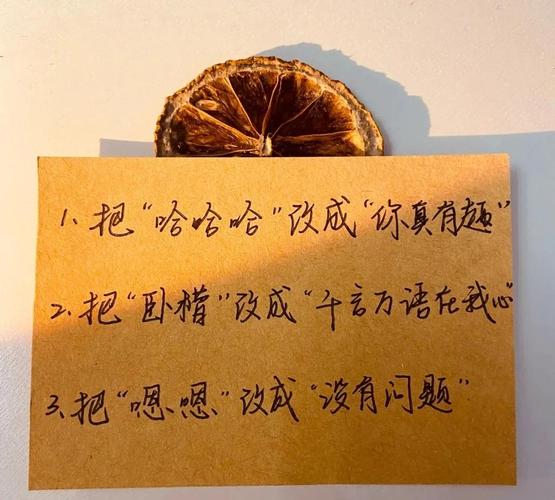 1、把“哈哈哈”改成“你真有趣”
2、把“卧槽”改成“千言万语在我心”
3、把“嗯嗯”改成“没有问题”